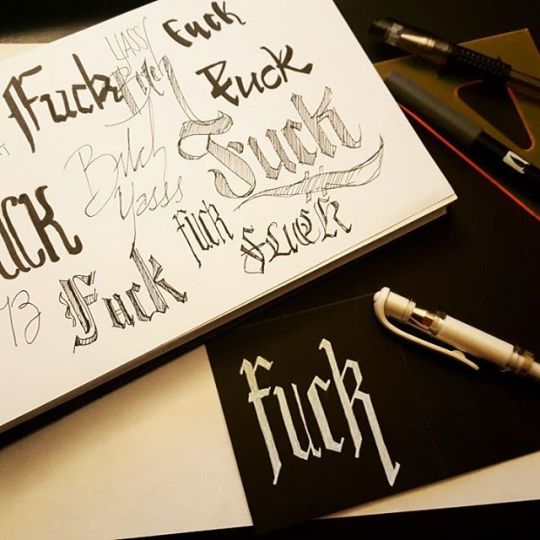 Fuck
YASS
Bitch
Fuck
Fuck
Bitch
Yasss
Fuck
uck
fuck
Fuck
Fuck
fuck